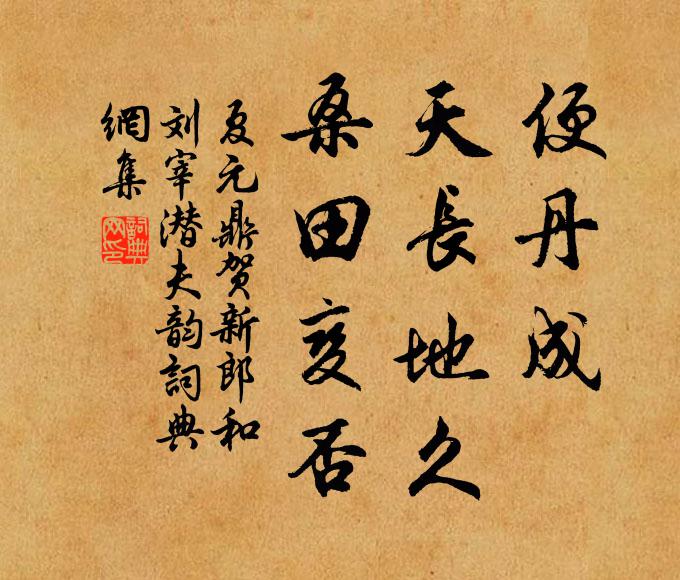 便丹成
天長地久
桑田变否
夏元鼎贺新郎和
刘宰潜夫韵詞典
網集
詞典
网印